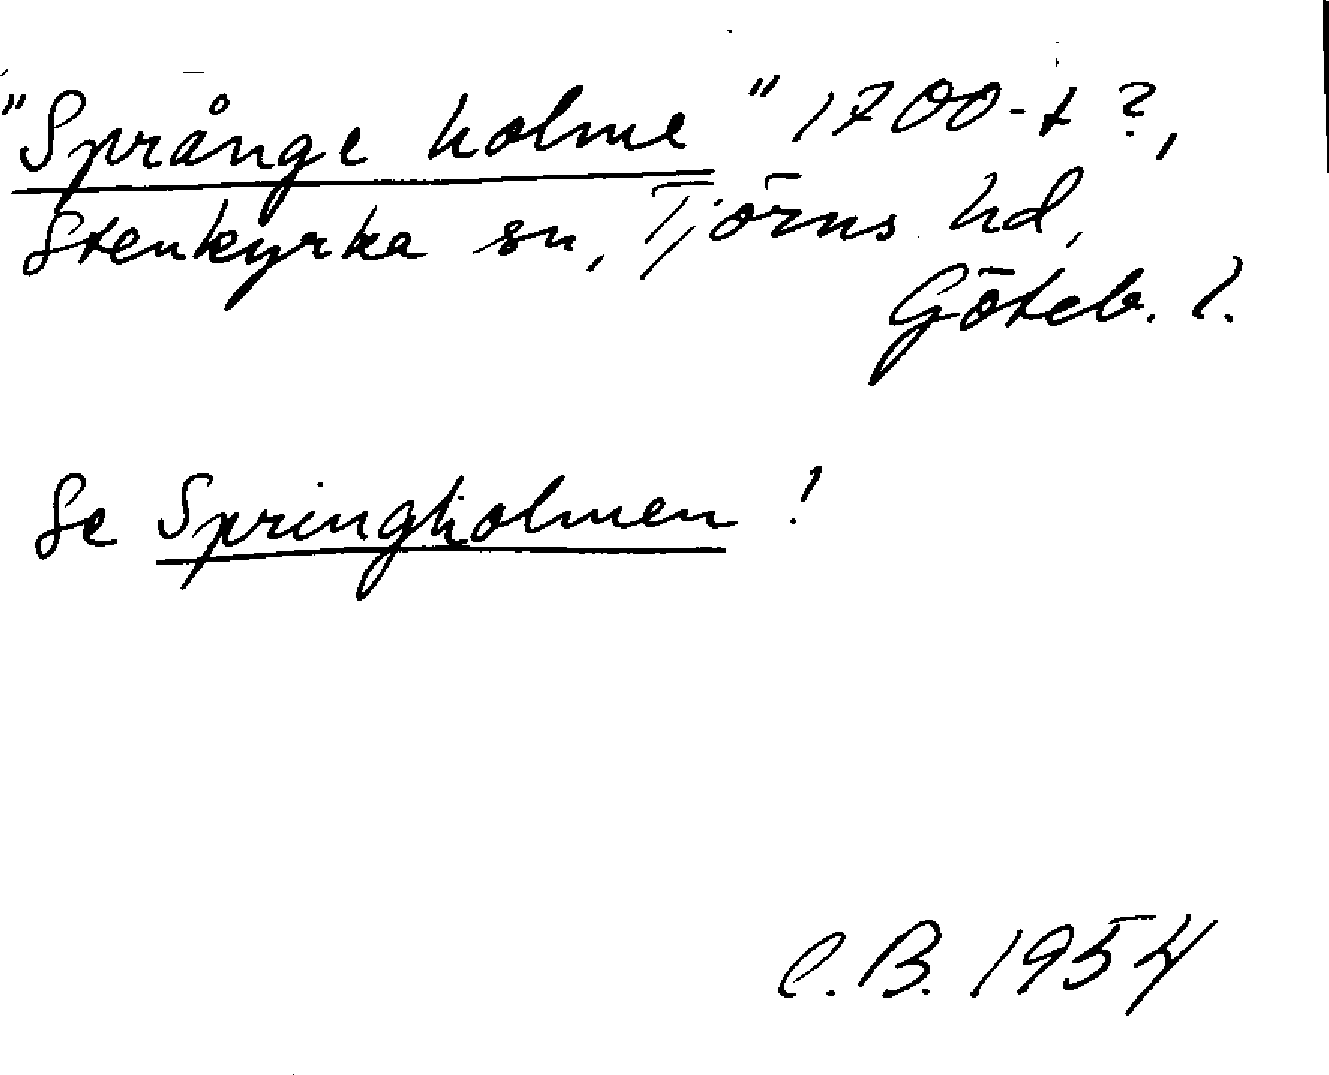 "Språnge holme" 1700-t?,
Stenkyrka sn, Tjörns hd,
Göteb. l.
Se Springholmen!
C.B. 1954